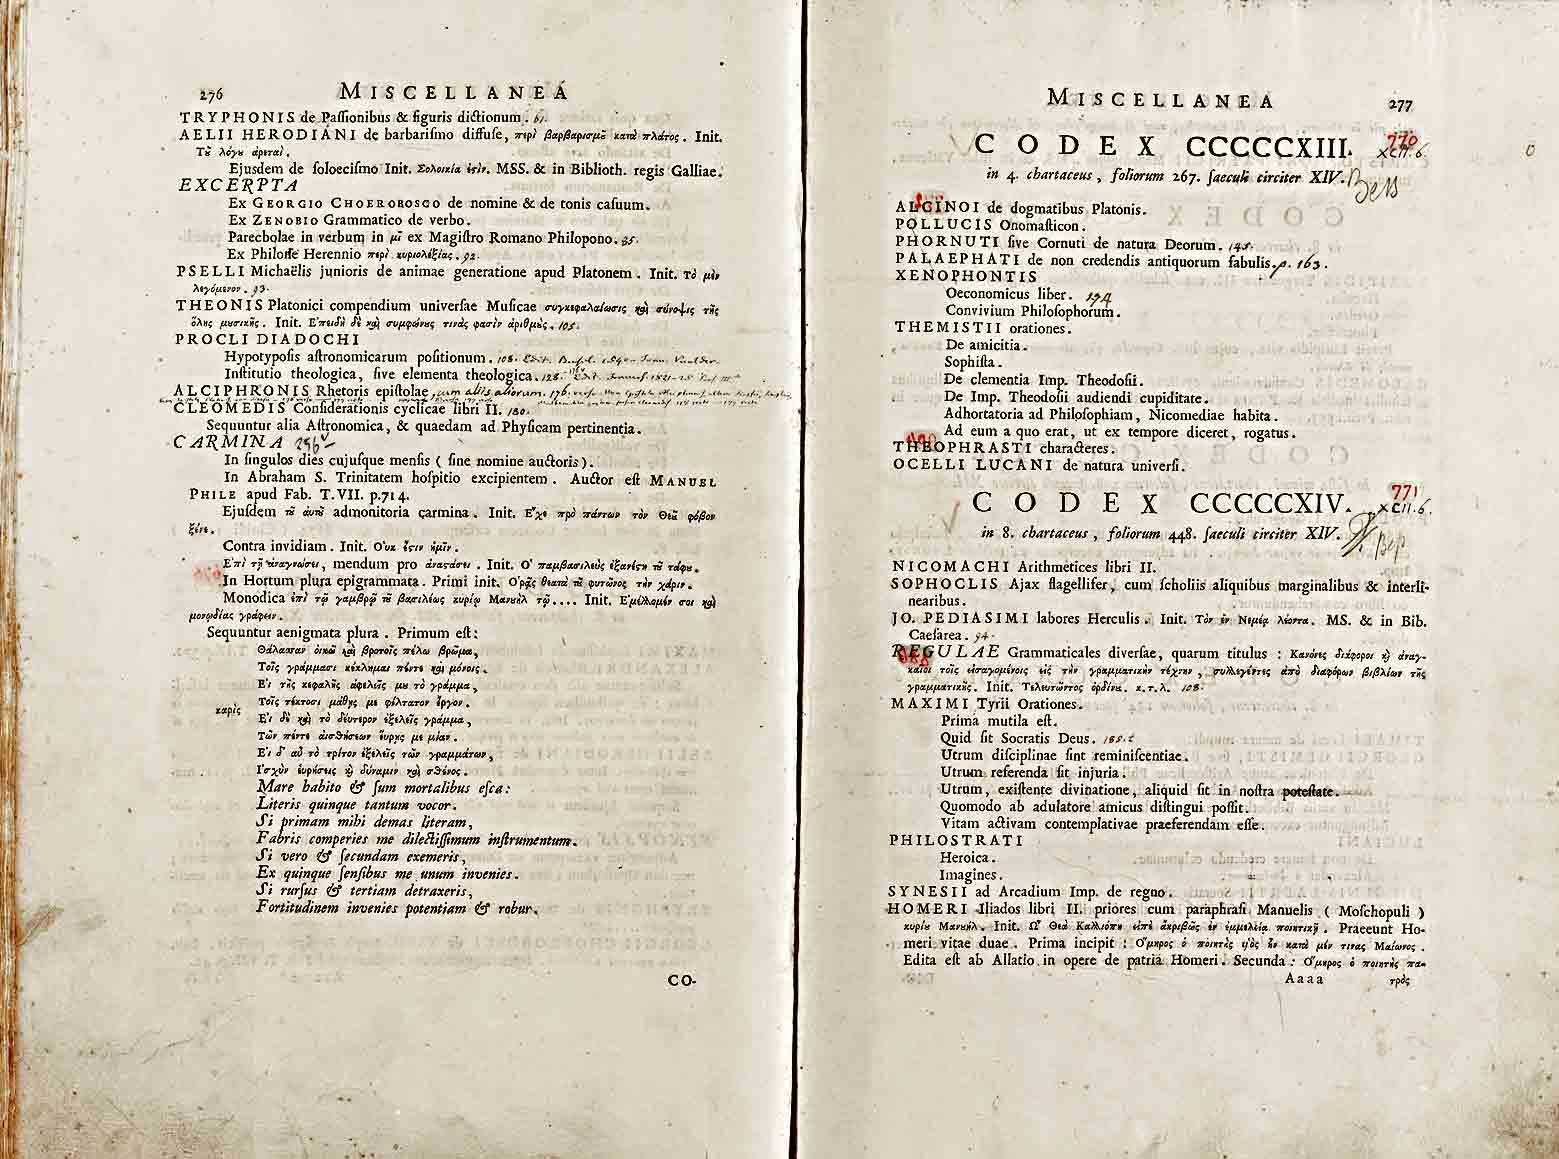 276 MISCELLANEA
TRYPHONIS de Paſſionibus & figuris dictionum. 61.
AELII HERODIANI de barbariſmo diffuſe, περὶ βαρβαρισμοῦ κατὰ πλάτος. Init.
Τοῦ λόγου ἀρεταὶ.
Ejuſdem de ſoloeciſmo Init. Σολοικία ἐςὶν. MSS. & in Biblioth. regis Galliae.
EXCERPTA
Ex GEORGIO CHOEROBOSCO de nomine & de tonis caſuum.
Ex ZENOBIO Grammatico de verbo.
Parecbolae in verbum in μῖ ex Magiſtro Romano Philopono. 85.
Ex Philone Herennio περὶ κυριολέξίας. 92.
PSELLI Michaëlis junioris de animae generatione apud Platonem. Init. Τὸ μὲν
λεγόμενον. 93.
THEONIS Platonici compendium univerſae Muſicae συγκεφαλαίωσις καὶ σύνοψις τῆς
ὅλης μυσικῆς. Init. Ἐπειδὴ δὲ καὶ συμφώνυς τινὰς φασὶν ἀριθμὺς. 105.
PROCLI DIADOCHI
Hypotypoſis aſtronomicarum poſitionum. 108.
Inſtitutio theologica, ſive elementa theologica. 128.
ALCIPHRONIS Rhetoris epiſtolae, cum aliis aliorum. 176.
CLEOMEDIS Conſiderationis cyclicae libri II. 180.
Sequuntur alia Aſtronomica, & quaedam ad Phyſicam pertinentia.
CARMINA 296
In ſingulos dies cujuſque menſis ( ſine nomine auctoris ).
In Abraham S. Trinitatem hoſpitio excipientem. Auctor eſt MANUEL
PHILE apud Fab. T.VII. p.714.
Ejuſdem τοῦ αὐτοῦ admonitoria carmina. Init. Ἔχε πρὸ πάντων τὸν Θεοῦ φόβον
ξένε.
Contra invidiam. Init. Οὐκ ἔςιν ἡμῖν.
Ἐπὶ τῇ ἀναγνώσει, mendum pro ἀναςάσει. Init. Ὁ παμβασιλεὺς ἐξανέςη τοῦ τάφου.
In Hortum plura epigrammata. Primi init. Ὁρᾷς θεατὰ τοῦ φυτῶνος τὴν χάριν.
Monodica ἐπὶ τῷ γαμβρῷ τοῦ βασιλέως κυρίῳ Μανυὴλ τῷ.... Init. Ἐμέλλομέν σοι καὶ
μονῳδίας γράφειν.
Sequuntur aenigmata plura. Primum eſt:
Θάλασσαν οἰκῶ καὶ βροτοῖς πέλω βρῶμα,
Τοῖς γράμμασι κέκλημαι πέντε καὶ μόνοις.
Εἰ τῆς κεφαλῆς ἀφελεῖς μου τὸ γράμμα,
Τοῖς τέκτοσι μάθῃς με φίλτατον ἔργον.
καρὶς
Εἰ δὲ καὶ τὸ δεύτερον ἐξελεῖς γράμμα,
Τῶν πέντε αἰσθήσεων εὕρῃς με μίαν.
Εἰ δ' αὖ τὸ τρίτον ἐξελεῖς τῶν γραμμάτων,
Ἰσχὺν εὑρήσεις καὶ δύναμιν καὶ σθένος.
Mare habito & ſum mortalibus eſca:
Literis quinque tantum vocor.
Si primam mihi demas literam,
Fabris comperies me dilectiſſimum inſtrumentum.
Si vero & ſecundam exemeris,
Ex quinque ſenſibus me unum invenies.
Si rurſus & tertiam detraxeris,
Fortitudinem invenies potentiam & robur.
CO-
MISCELLANEA 277
CODEX CCCCCXIII. 770
XCII.6.
in 4. chartaceus, foliorum 267. ſaeculi circiter XIV. Bess
ALCINOI de dogmatibus Platonis.
POLLUCIS Onomaſticon.
PHORNUTI ſive Cornuti de natura Deorum. 145.
PALAEPHATI de non credendis antiquorum fabulis. p. 163.
XENOPHONTIS
Oeconomicus liber. 174
Convivium Philoſophorum.
THEMISTII orationes.
De amicitia.
Sophiſta.
De clementia Imp. Theodoſii.
De Imp. Theodoſii audiendi cupiditate.
Adhortatoria ad Philoſophiam, Nicomediae habita.
Ad eum a quo erat, ut ex tempore diceret, rogatus.
THEOPHRASTI characteres.
OCELLI LUCANI de natura univerſi.
CODEX CCCCCXIV. 771
XCII.6.
in 8. chartaceus, foliorum 448. ſaeculi circiter XIV.
NICOMACHI Arithmetices libri II.
SOPHOCLIS Ajax flagellifer, cum ſcholiis aliquibus marginalibus & interli-
nearibus.
JO. PEDIASIMI labores Herculis. Init. Τὸν ἐν Νεμέᾳ λέοντα. MS. & in Bib.
Caeſarea. 94.
REGULAE Grammaticales diverſae, quarum titulus: Κανόνες διάφοροι καὶ ἀναγ-
καῖοι τοῖς εἰσαγομένοις εἰς τὴν γραμματικὴν τέχνην, συλλεγέντες ἀπὸ διαφόρων βιβλίων τῆς
γραμματικῆς. Init. Τελευτῶντος ὀρδίνα. κ.τ.λ. 108.
MAXIMI Tyrii Orationes.
Prima mutila eſt.
Quid ſit Socratis Deus. 185.
Utrum diſciplinae ſint reminiſcentiae.
Utrum referenda ſit injuria.
Utrum, exiſtente divinatione, aliquid ſit in noſtra poteſtate.
Quomodo ab adulatore amicus diſtingui poſſit.
Vitam activam contemplativae praeferendam eſſe.
PHILOSTRATI
Heroica.
Imagines.
SYNESII ad Arcadium Imp. de regno.
HOMERI Iliados libri II. priores cum paraphraſi Manuelis ( Moſchopuli )
κυρίου Μανυὴλ. Init. Ὦ Θεὰ Καλλιόπη εἰπὲ ἀκριβῶς ἐν ἐμμελείᾳ ποιητικῇ. Praeeunt Ho-
meri vitae duae. Prima incipit: Ὅμηρος ὁ ποιητὴς υἱὸς ἦν κατὰ μέν τινας Μαίωνος.
Edita eſt ab Allatio in opere de patria Homeri. Secunda: Ὅμηρος ὁ ποιητὴς πα-
Aaaa τρὸς